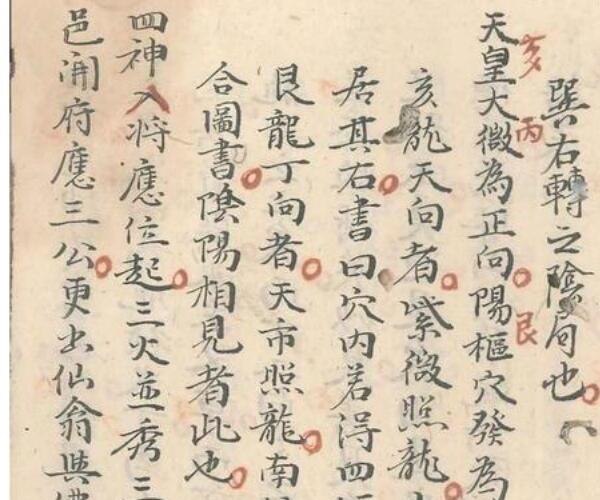 巽右轉之陰局也
天皇大微為正向陽樞穴發為
亥丙艮
亥龍天向者紫微照龍
居其右書曰穴内若得四
艮龍丁向者天市照龍南
合圖書陰陽相見者此也
四神八將應位起三火並秀三
邑開府應三公更出仙翁與